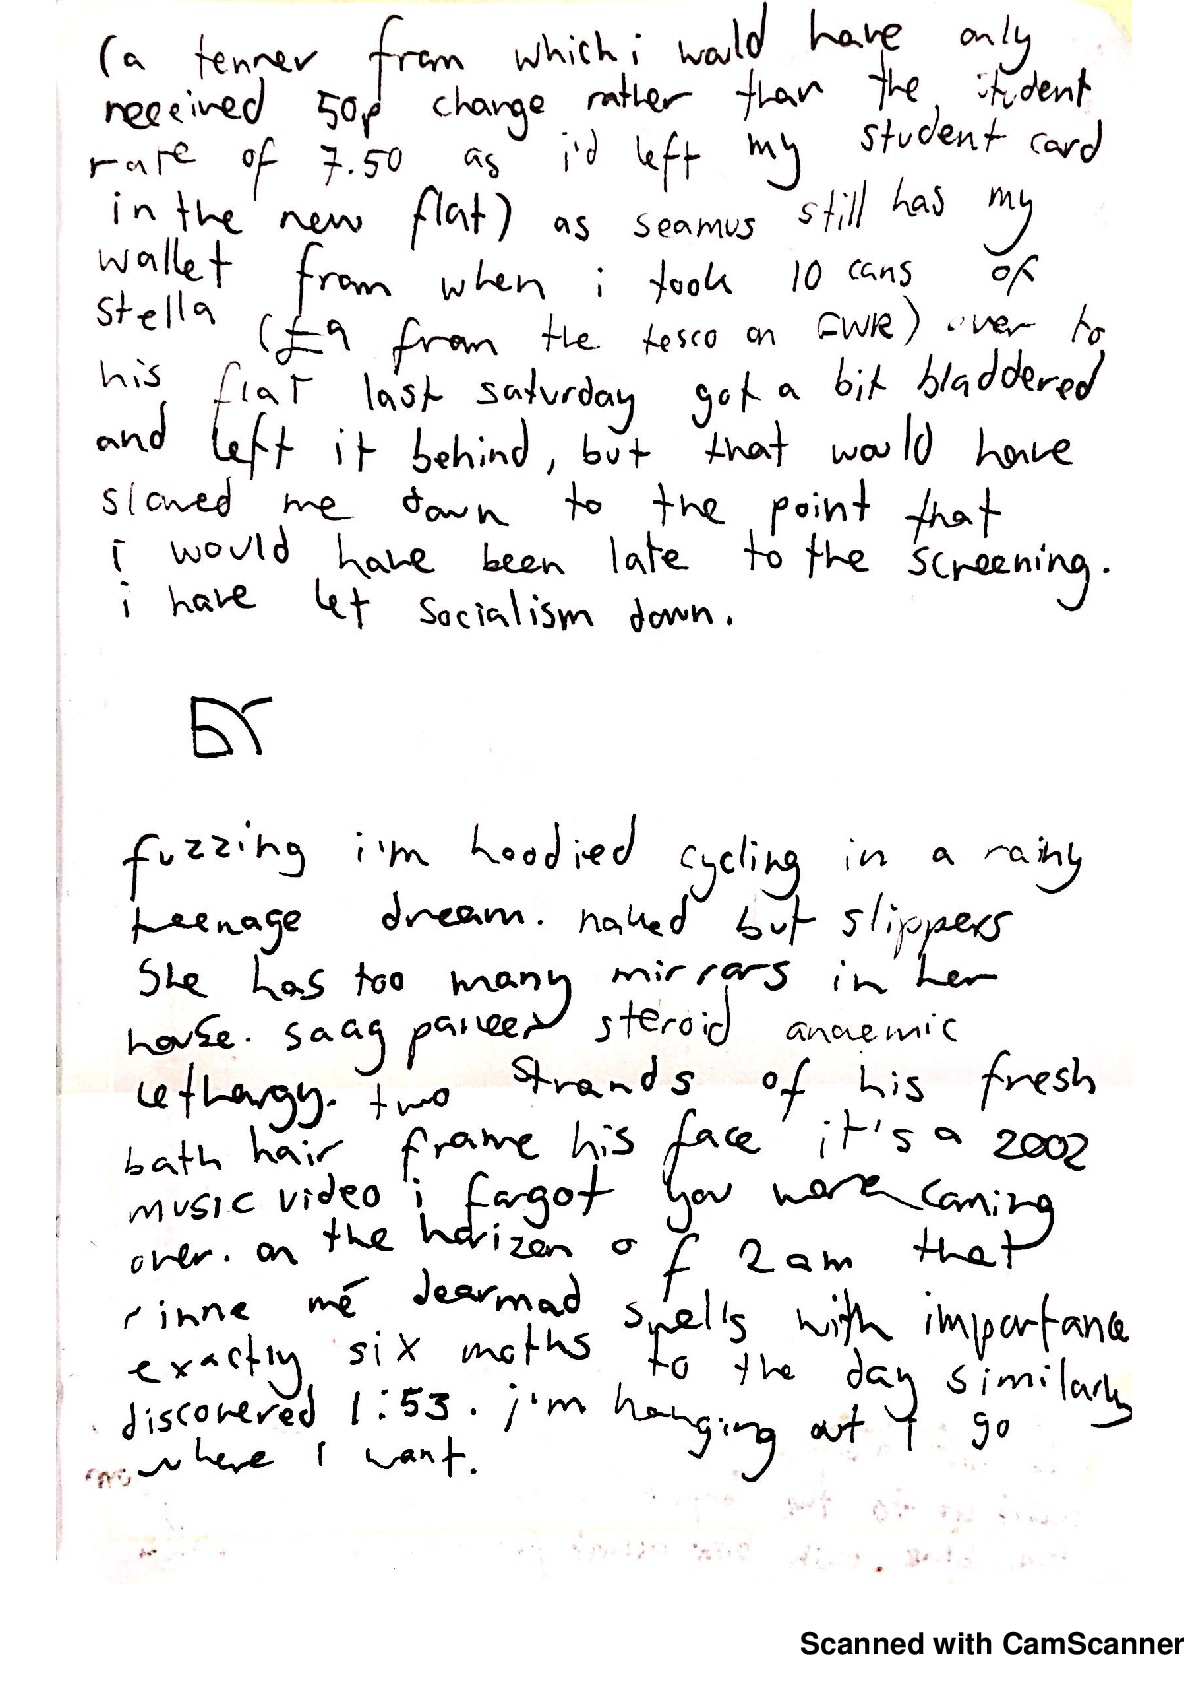 (a tenner from which i would have only
received 50p change rather than the student
rate of 7.50 as i'd left my student card
in the new flat) as seamus still has my
wallet from when i took 10 cans of
stella (£9 from the tesco on GWR) over to
his flat last saturday got a bit bladdered
and left it behind, but that would have
slowed me down to the point that
i would have been late to the screening.
i have let socialism down.
fuzzing i'm hoodied cycling in a rainy
teenage dream. naked but slippers
She has too many mirrors in her
house. saag paneer steroid anaemic
lethargy. two strands of his fresh
bath hair frame his face it's a 2002
music video i forgot you were coming
over. on the horizon of 2am that
rinne mé dearmad spells with importance
exactly six moths to the day similarly
discovered 1:53. i'm hanging out I go
where I want.
Scanned with CamScanner